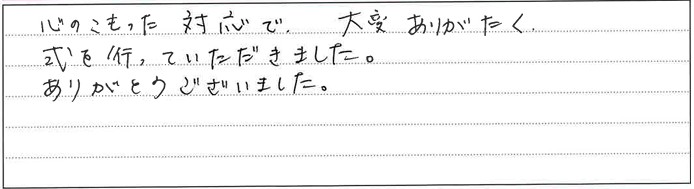 心のこもった対応で、大変ありがたく、
式を行っていただきました。
ありがとうございました。